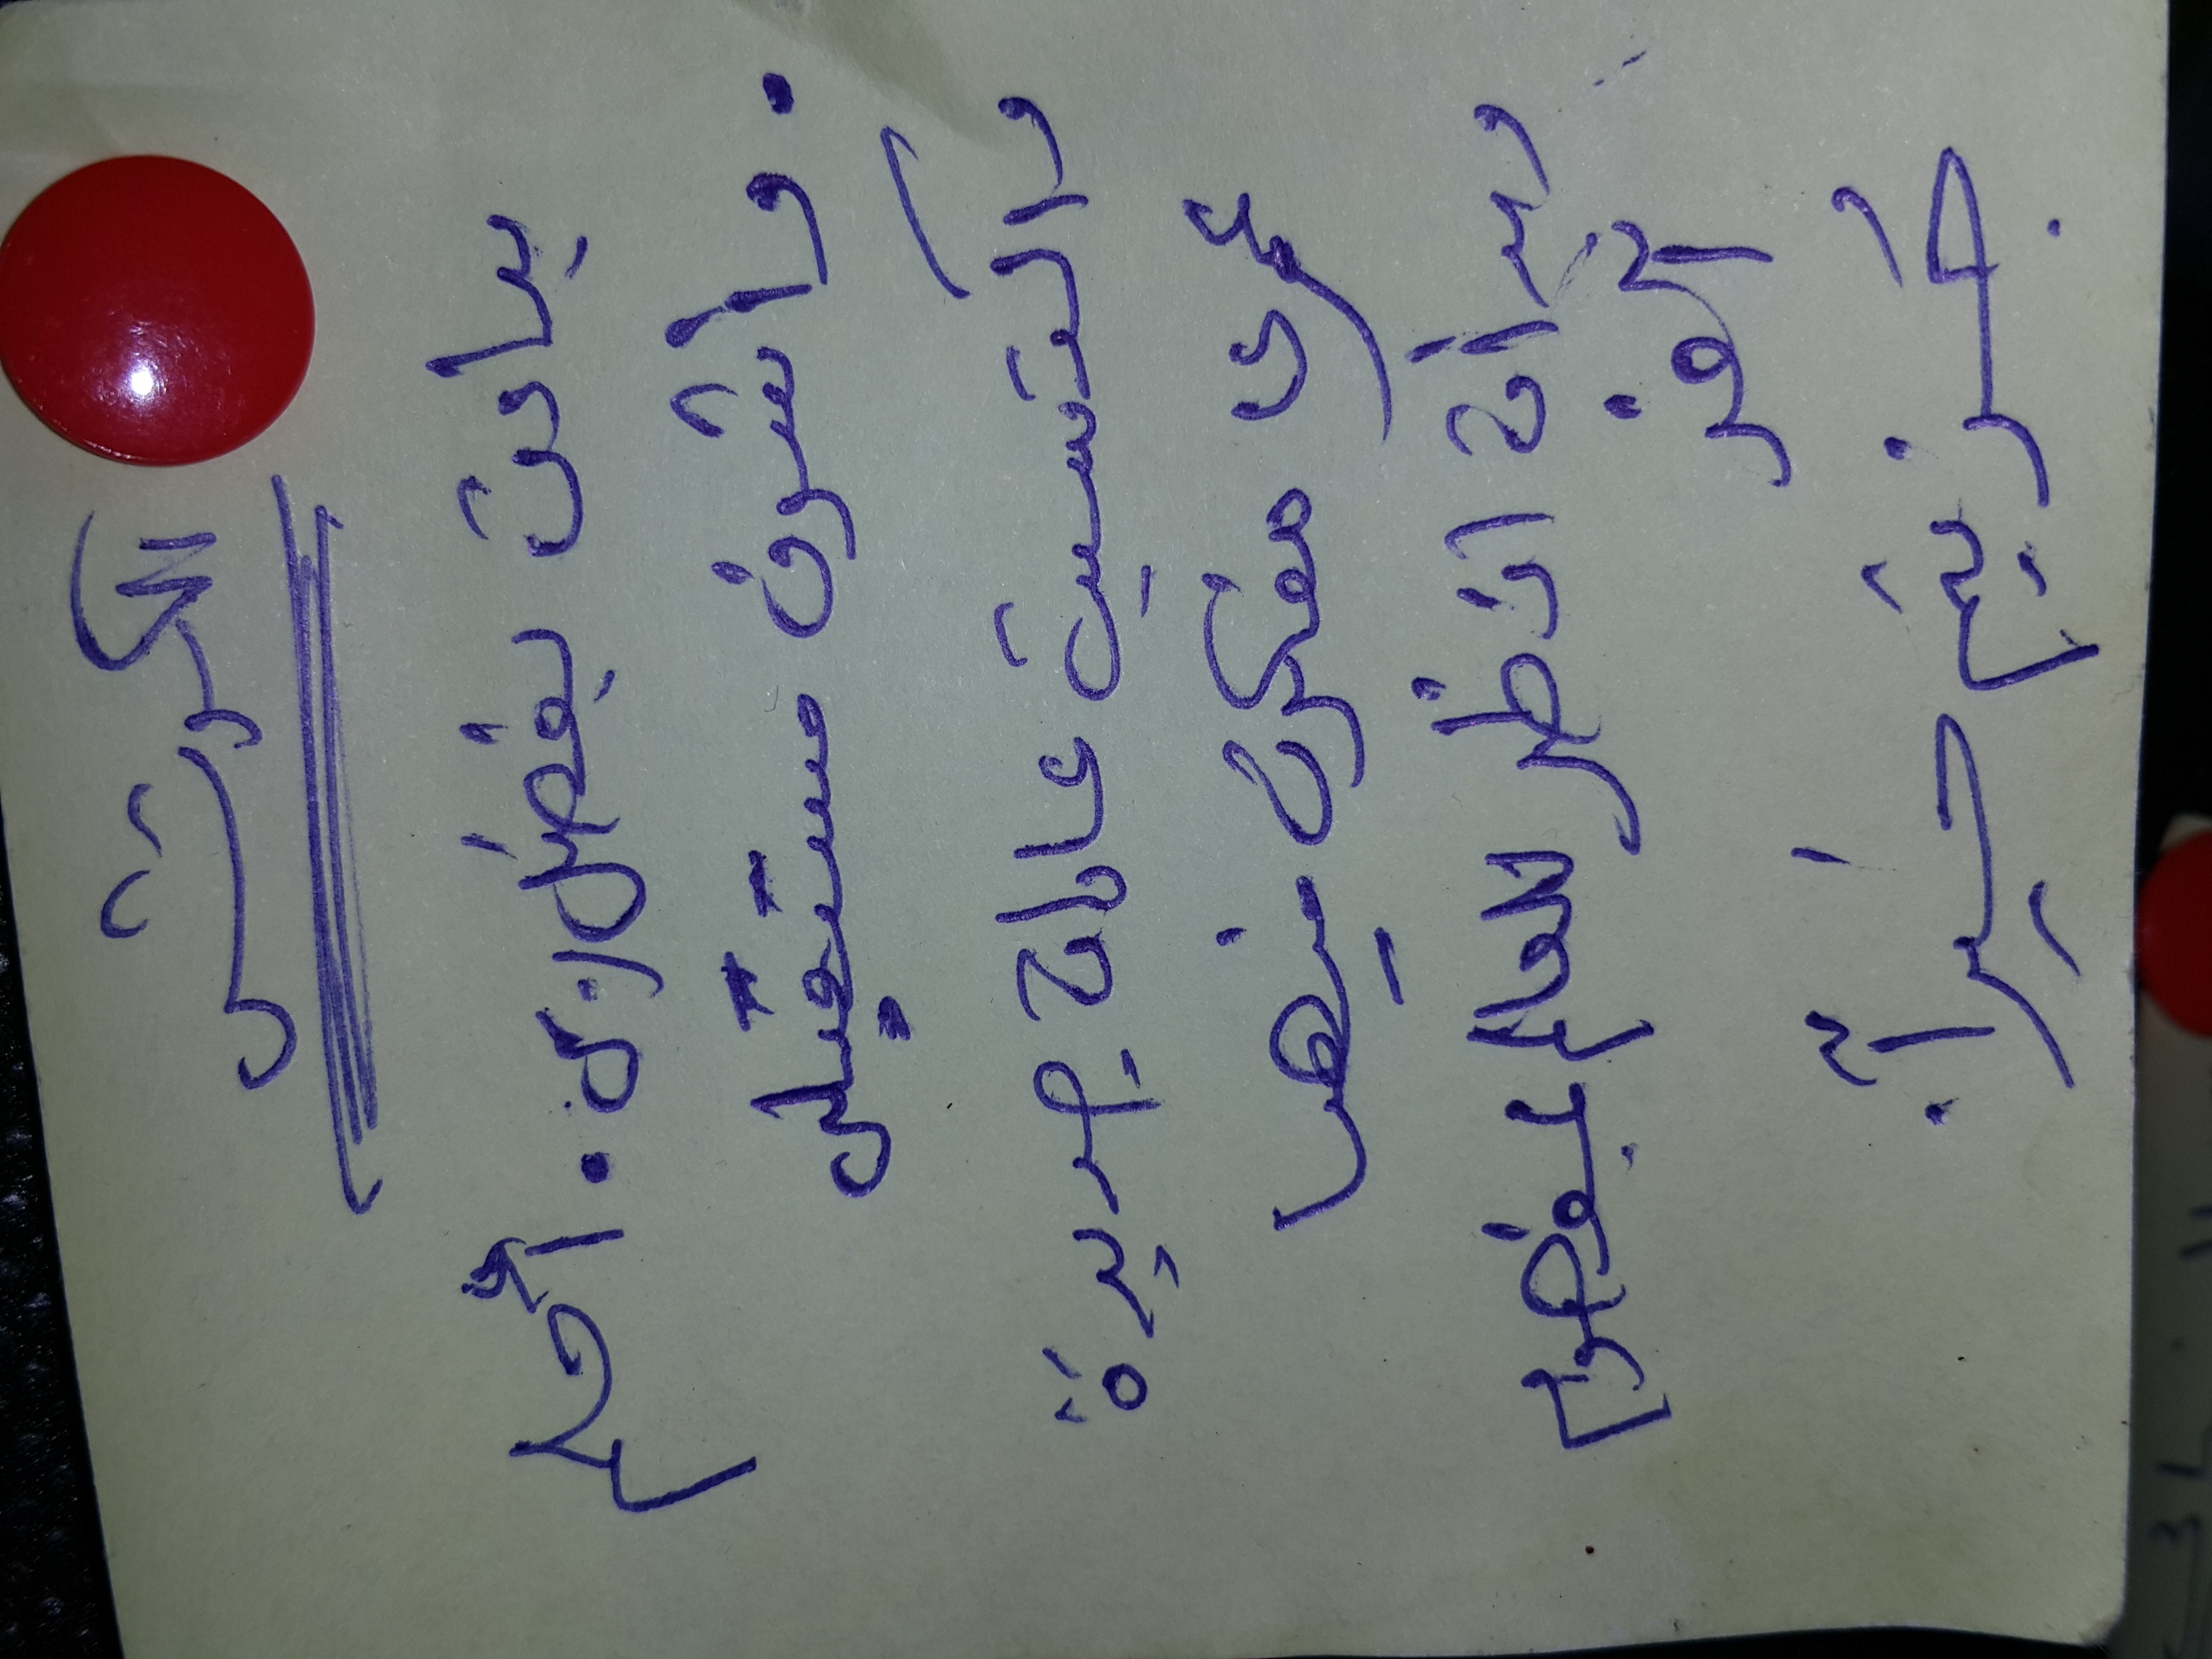 الكوتش
بدات بفضل ربى . أحلم
. واشوف مستقبلى
واكتسبت عادات جديدة
عمرى مفكرت فيها
وبدأت انظر للعالم بمفهوم
آخر
جُزيتم خيراً .